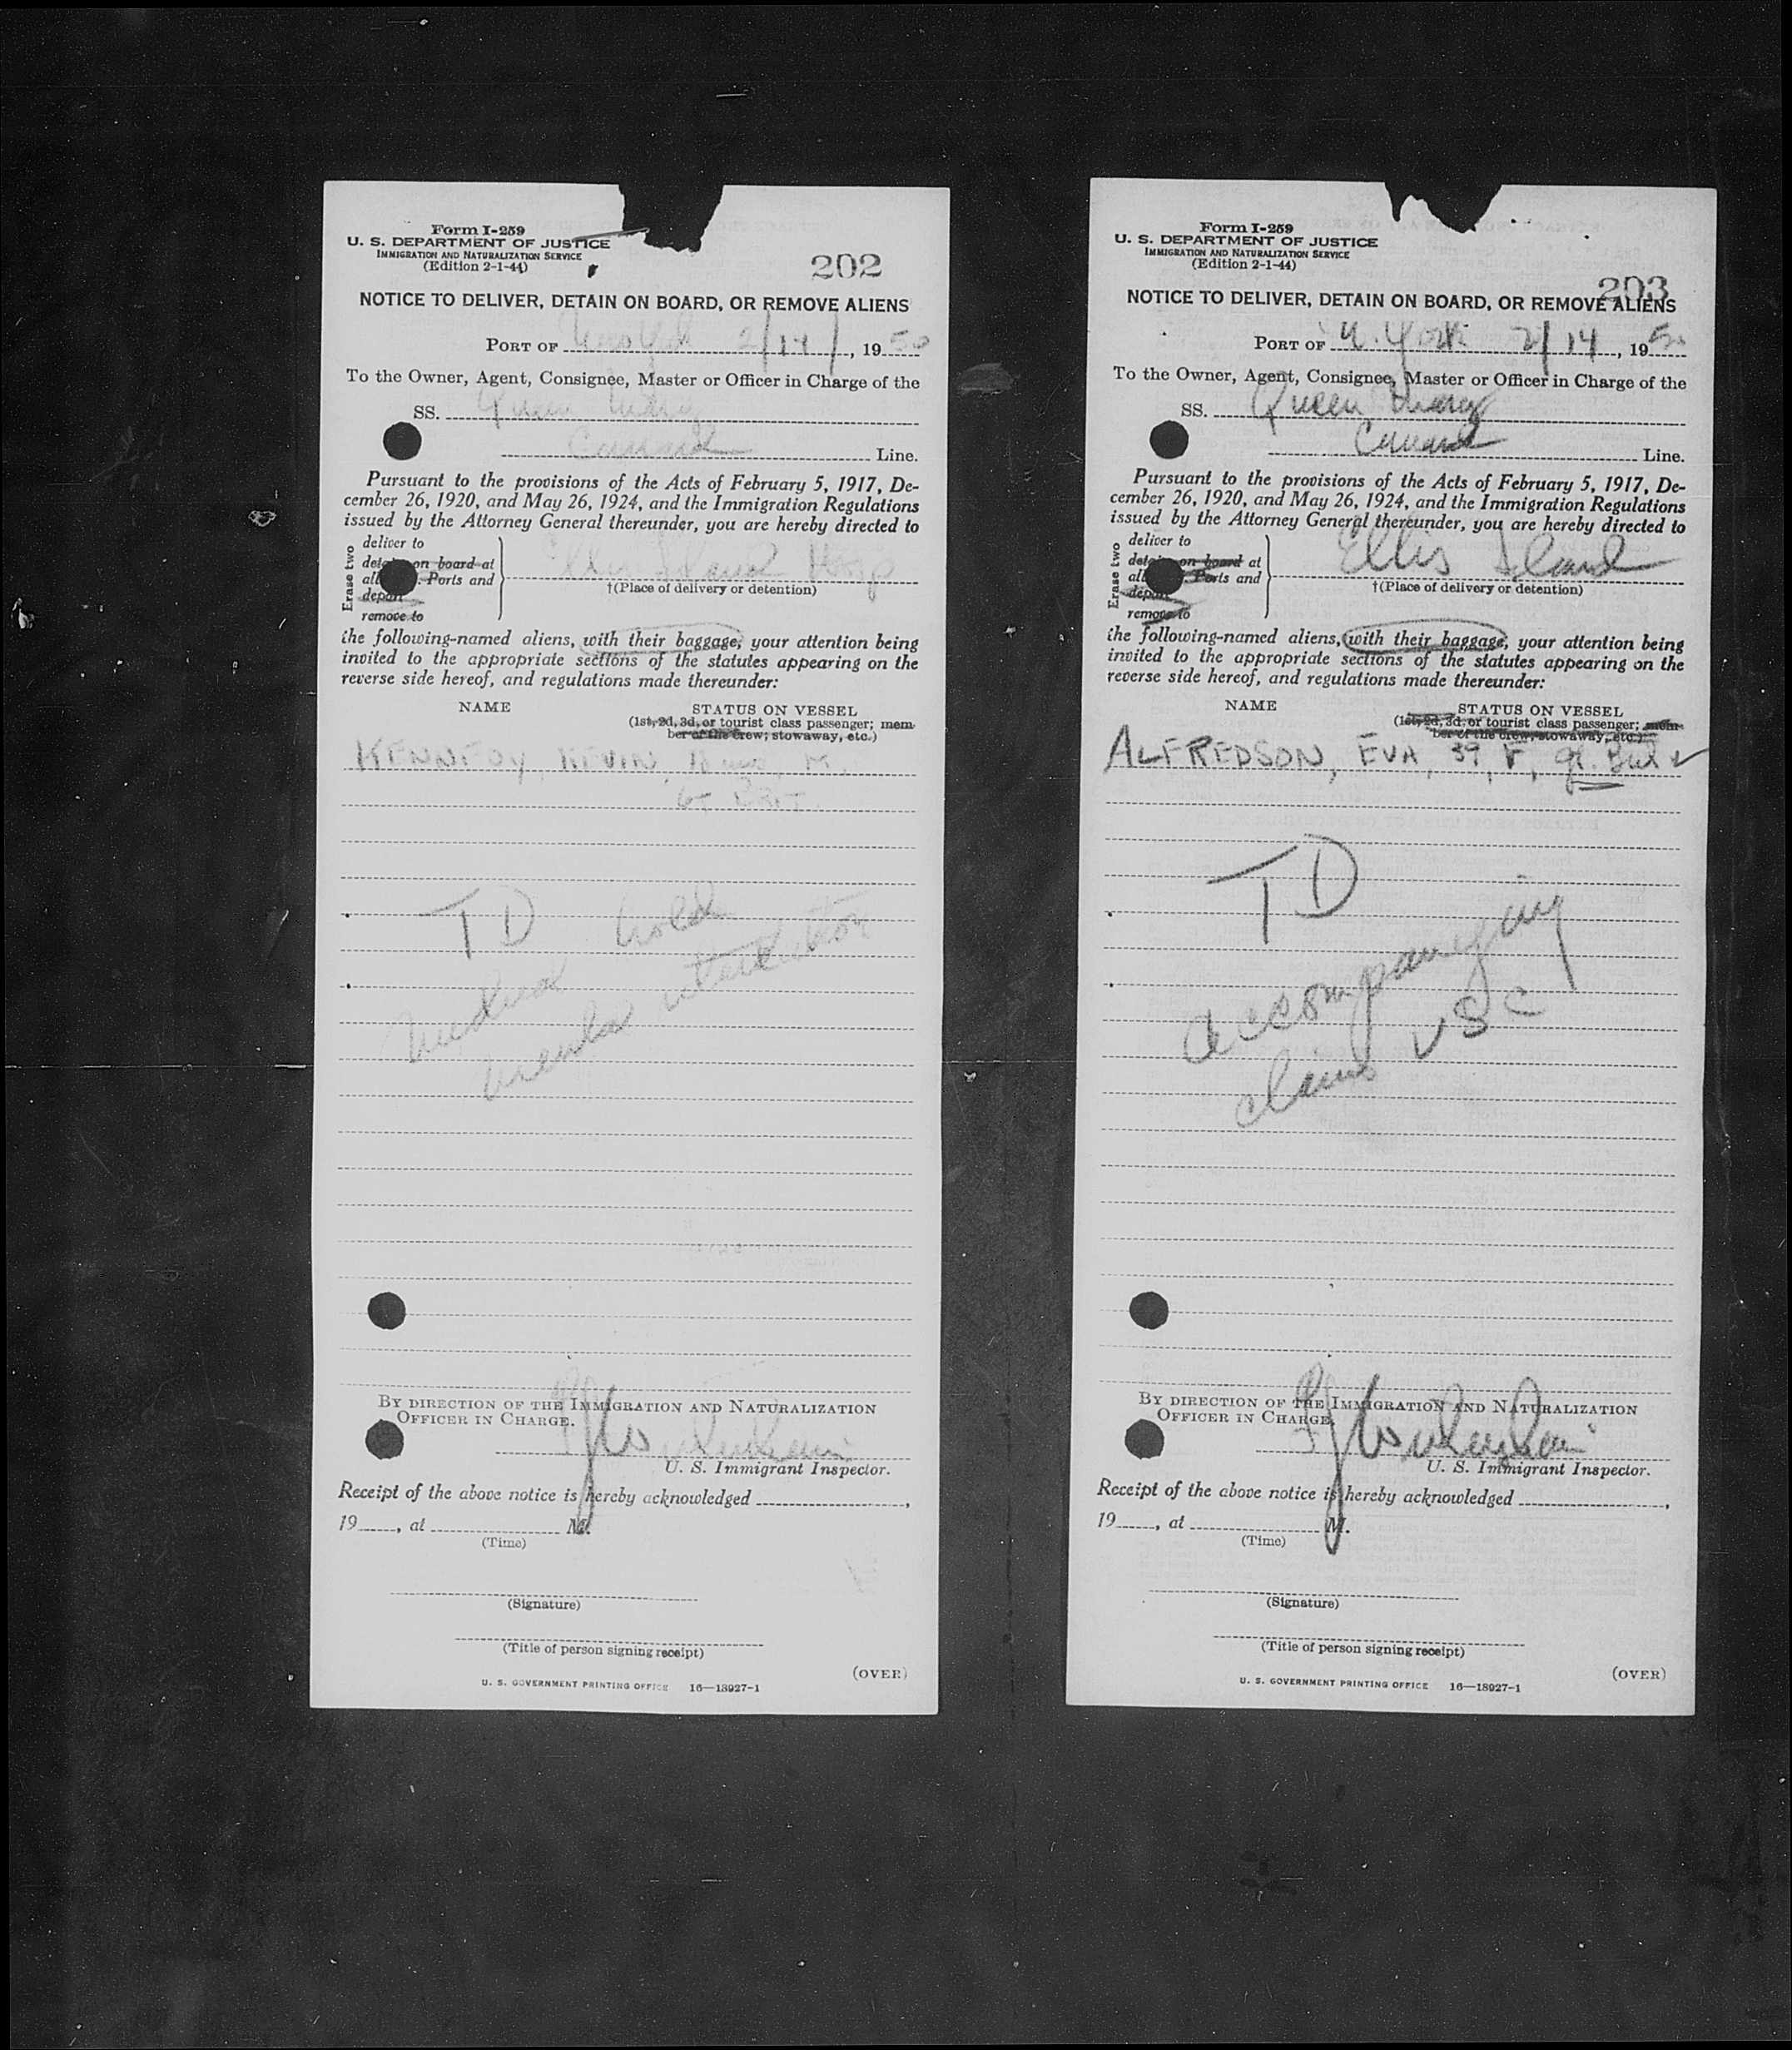 Form I-259
U. S. DEPARTMENT OF JUSTICE
IMMIGRATION AND NATURALIZATION SERVICE
(Edition 2-1-44)
202
NOTICE TO DELIVER, DETAIN ON BOARD, OR REMOVE ALIENS
PORT OF New York 2/14/, 1950
To the Owner, Agent, Consignee, Master or Officer in Charge of the
SS. Queen Mary
Cunard Line.
Pursuant to the provisions of the Acts of February 5, 1917, De-
cember 26, 1920, and May 26, 1924, and the Immigration Regulations
issued by the Attorney General thereunder, you are hereby directed to
Erase two
deliver to
on board at
all Ports and
deport
remove to
Ellis Island Hosp
†(Place of delivery or detention)
the following-named aliens, with their baggage, your attention being
invited to the appropriate sections of the statutes appearing on the
reverse side hereof, and regulations made thereunder:
NAME
STATUS ON VESSEL
(1st, 2d, 3d, or tourist class passenger; mem-
ber of the crew; stowaway, etc.)
KENNEDY, KEVIN, M.
GT BRT.
TD hold
BY DIRECTION OF THE IMMIGRATION AND NATURALIZATION
OFFICER IN CHARGE.
U. S. Immigrant Inspector.
Receipt of the above notice is hereby acknowledged
19, at M.
(Time)
(Signature)
(Title of person signing receipt)
(OVER)
U. S. GOVERNMENT PRINTING OFFICE 16—18927-1
Form I-259
U. S. DEPARTMENT OF JUSTICE
IMMIGRATION AND NATURALIZATION SERVICE
(Edition 2-1-44)
203
NOTICE TO DELIVER, DETAIN ON BOARD, OR REMOVE ALIENS
PORT OF N. York 2/14, 1950
To the Owner, Agent, Consignee, Master or Officer in Charge of the
SS. Queen Mary
Cunard Line.
Pursuant to the provisions of the Acts of February 5, 1917, De-
cember 26, 1920, and May 26, 1924, and the Immigration Regulations
issued by the Attorney General thereunder, you are hereby directed to
Erase two
deliver to
on board at
all Ports and
deport
remove to
Ellis Island
†(Place of delivery or detention)
the following-named aliens, with their baggage, your attention being
invited to the appropriate sections of the statutes appearing on the
reverse side hereof, and regulations made thereunder:
NAME
STATUS ON VESSEL
(1st, 2d, 3d, or tourist class passenger; mem-
ber of the crew, stowaway, etc.)
ALFREDSON, EVA, 39, F,
TD
accompanying
claims USC
BY DIRECTION OF THE IMMIGRATION AND NATURALIZATION
OFFICER IN CHARGE.
U. S. Immigrant Inspector.
Receipt of the above notice is hereby acknowledged
19, at M.
(Time)
(Signature)
(Title of person signing receipt)
(OVER)
U. S. GOVERNMENT PRINTING OFFICE 16—18927-1